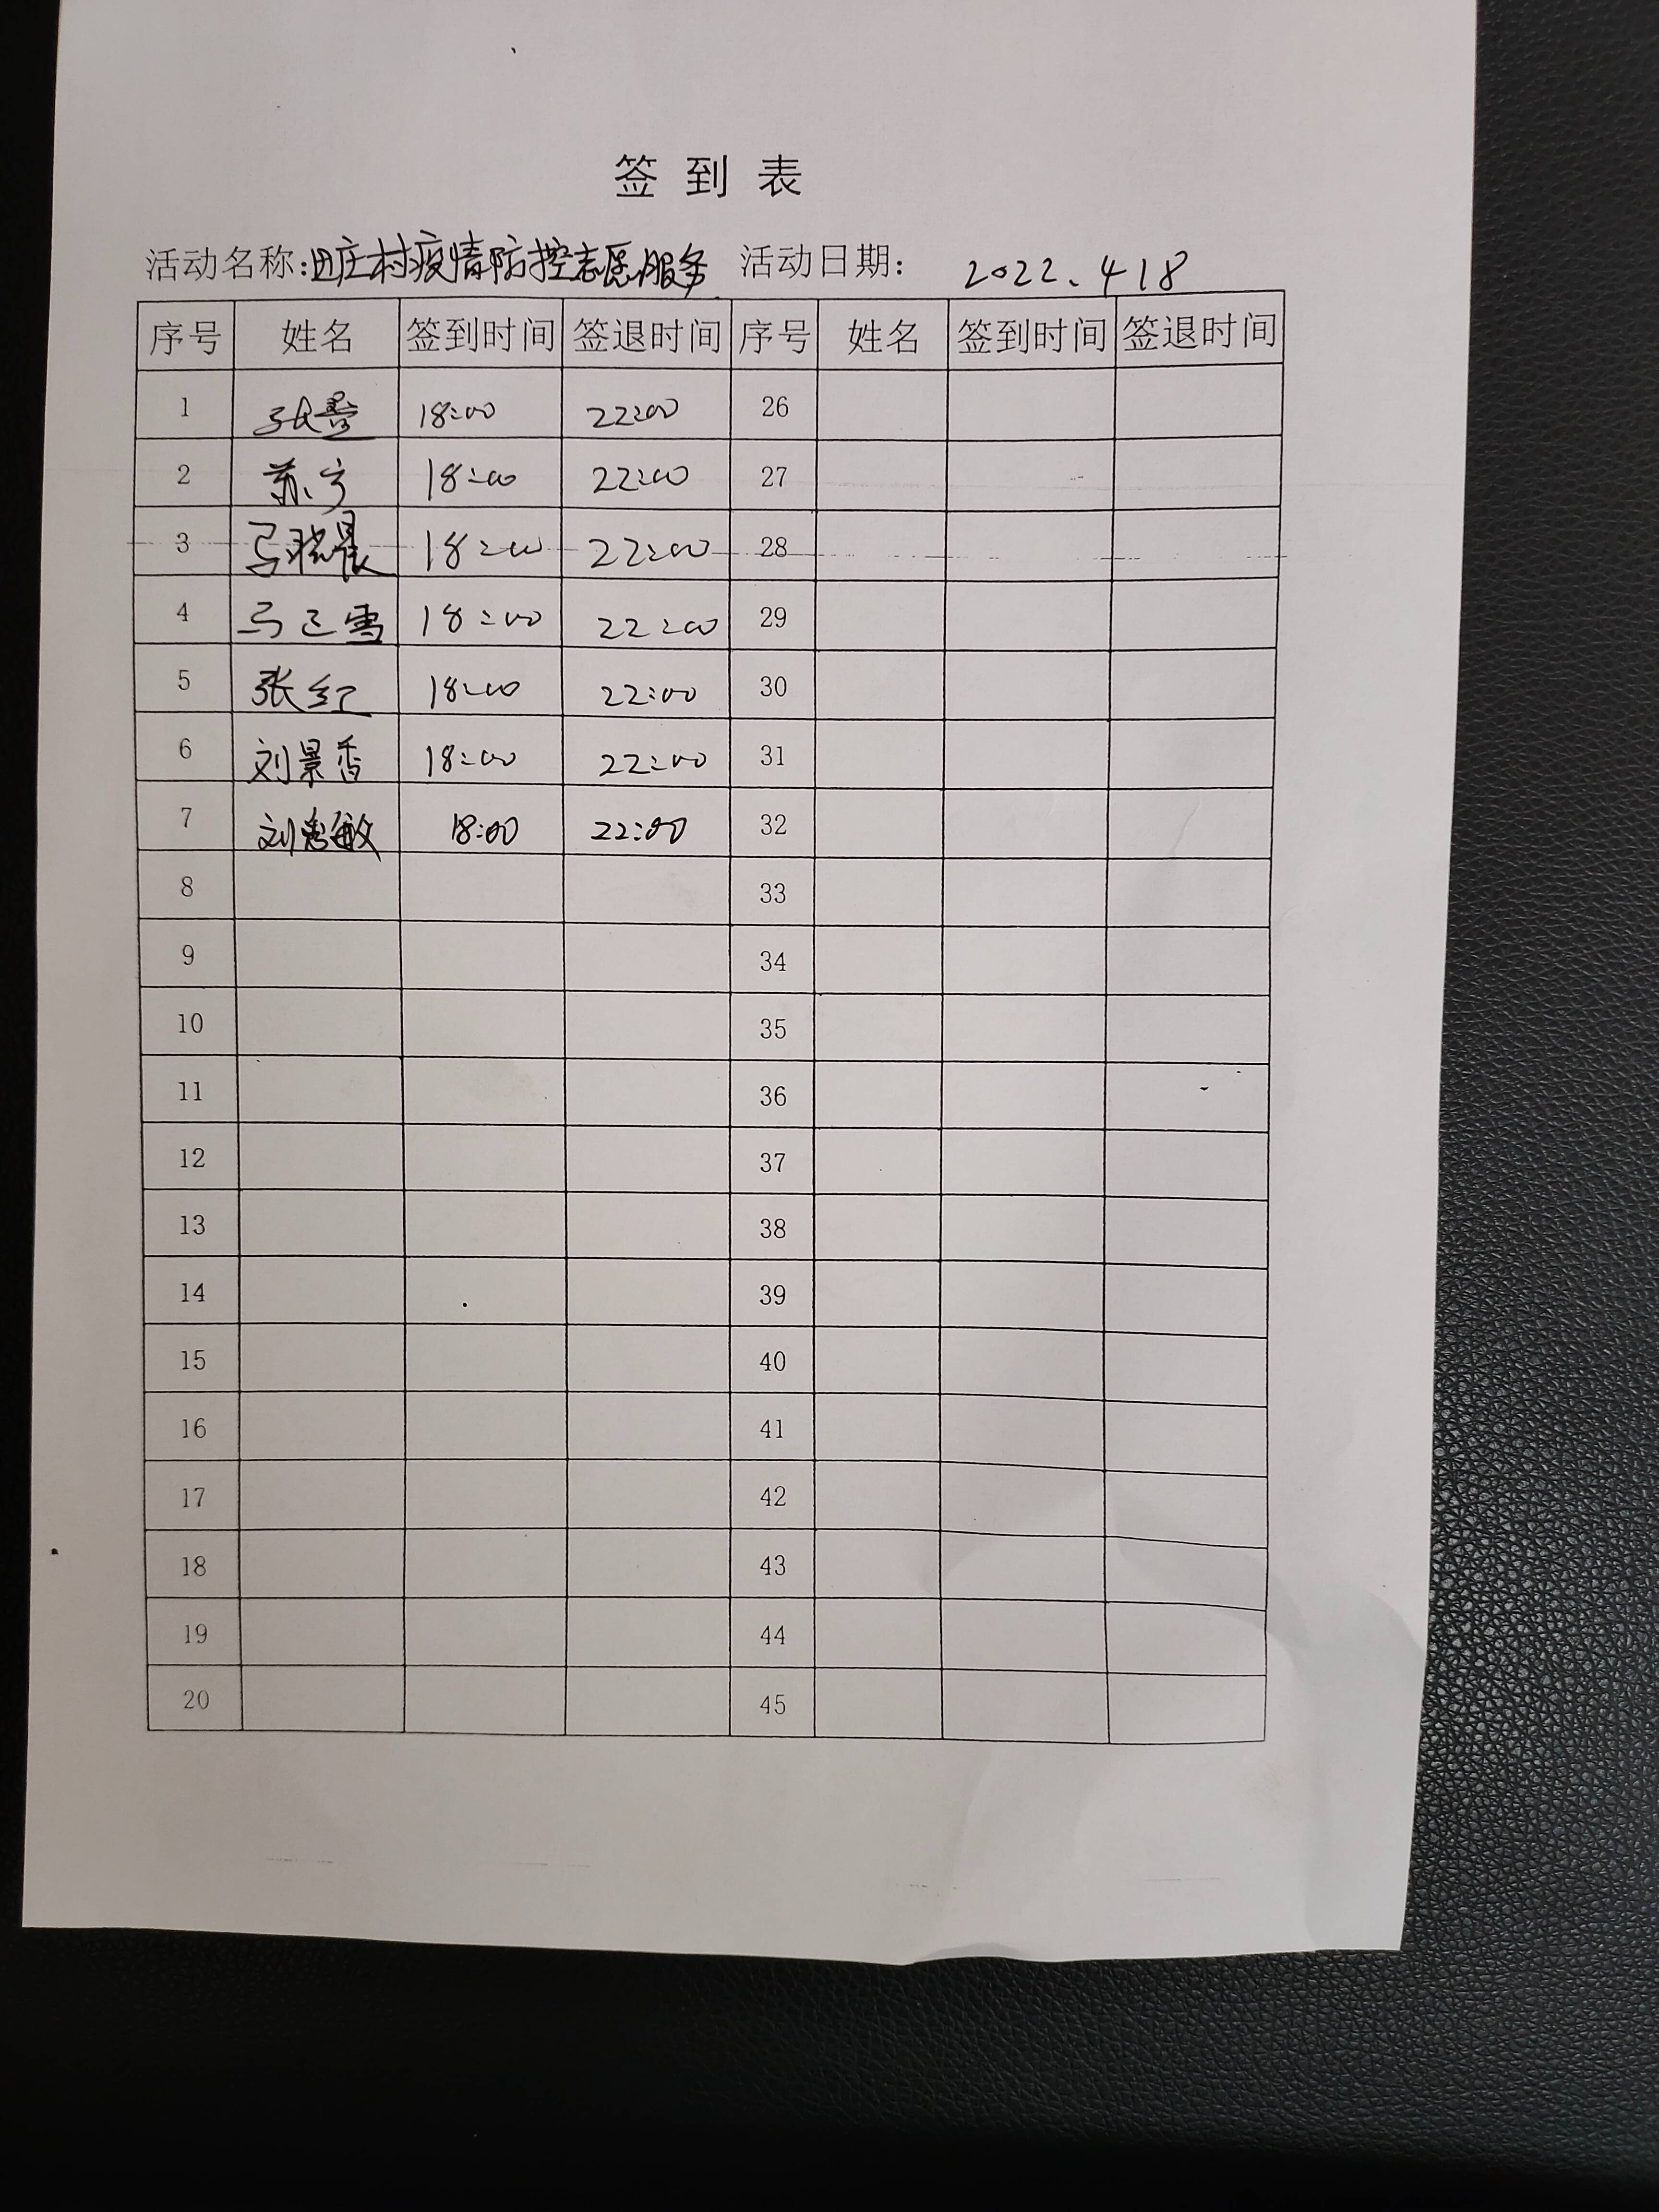 签到表
活动名称:田庄村疫情防控志愿服务 活动日期: 2022.4 18
序号 姓名 签到时间 签退时间 序号 姓名 签到时间 签退时间
1 18:00 22:00 26
2 苏宁 18:00 22:00 27
3 马晓晨 18:00 22:00 28
4 马 雪 18:00 22:00 29
5 张红 18:00 22:00 30
6 刘景香 18:00 22:00 31
7 刘惠敏 18:00 22:00 32
8 33
9 34
10 35
11 36
12 37
13 38
14 39
15 40
16 41
17 42
18 43
19 44
20 45